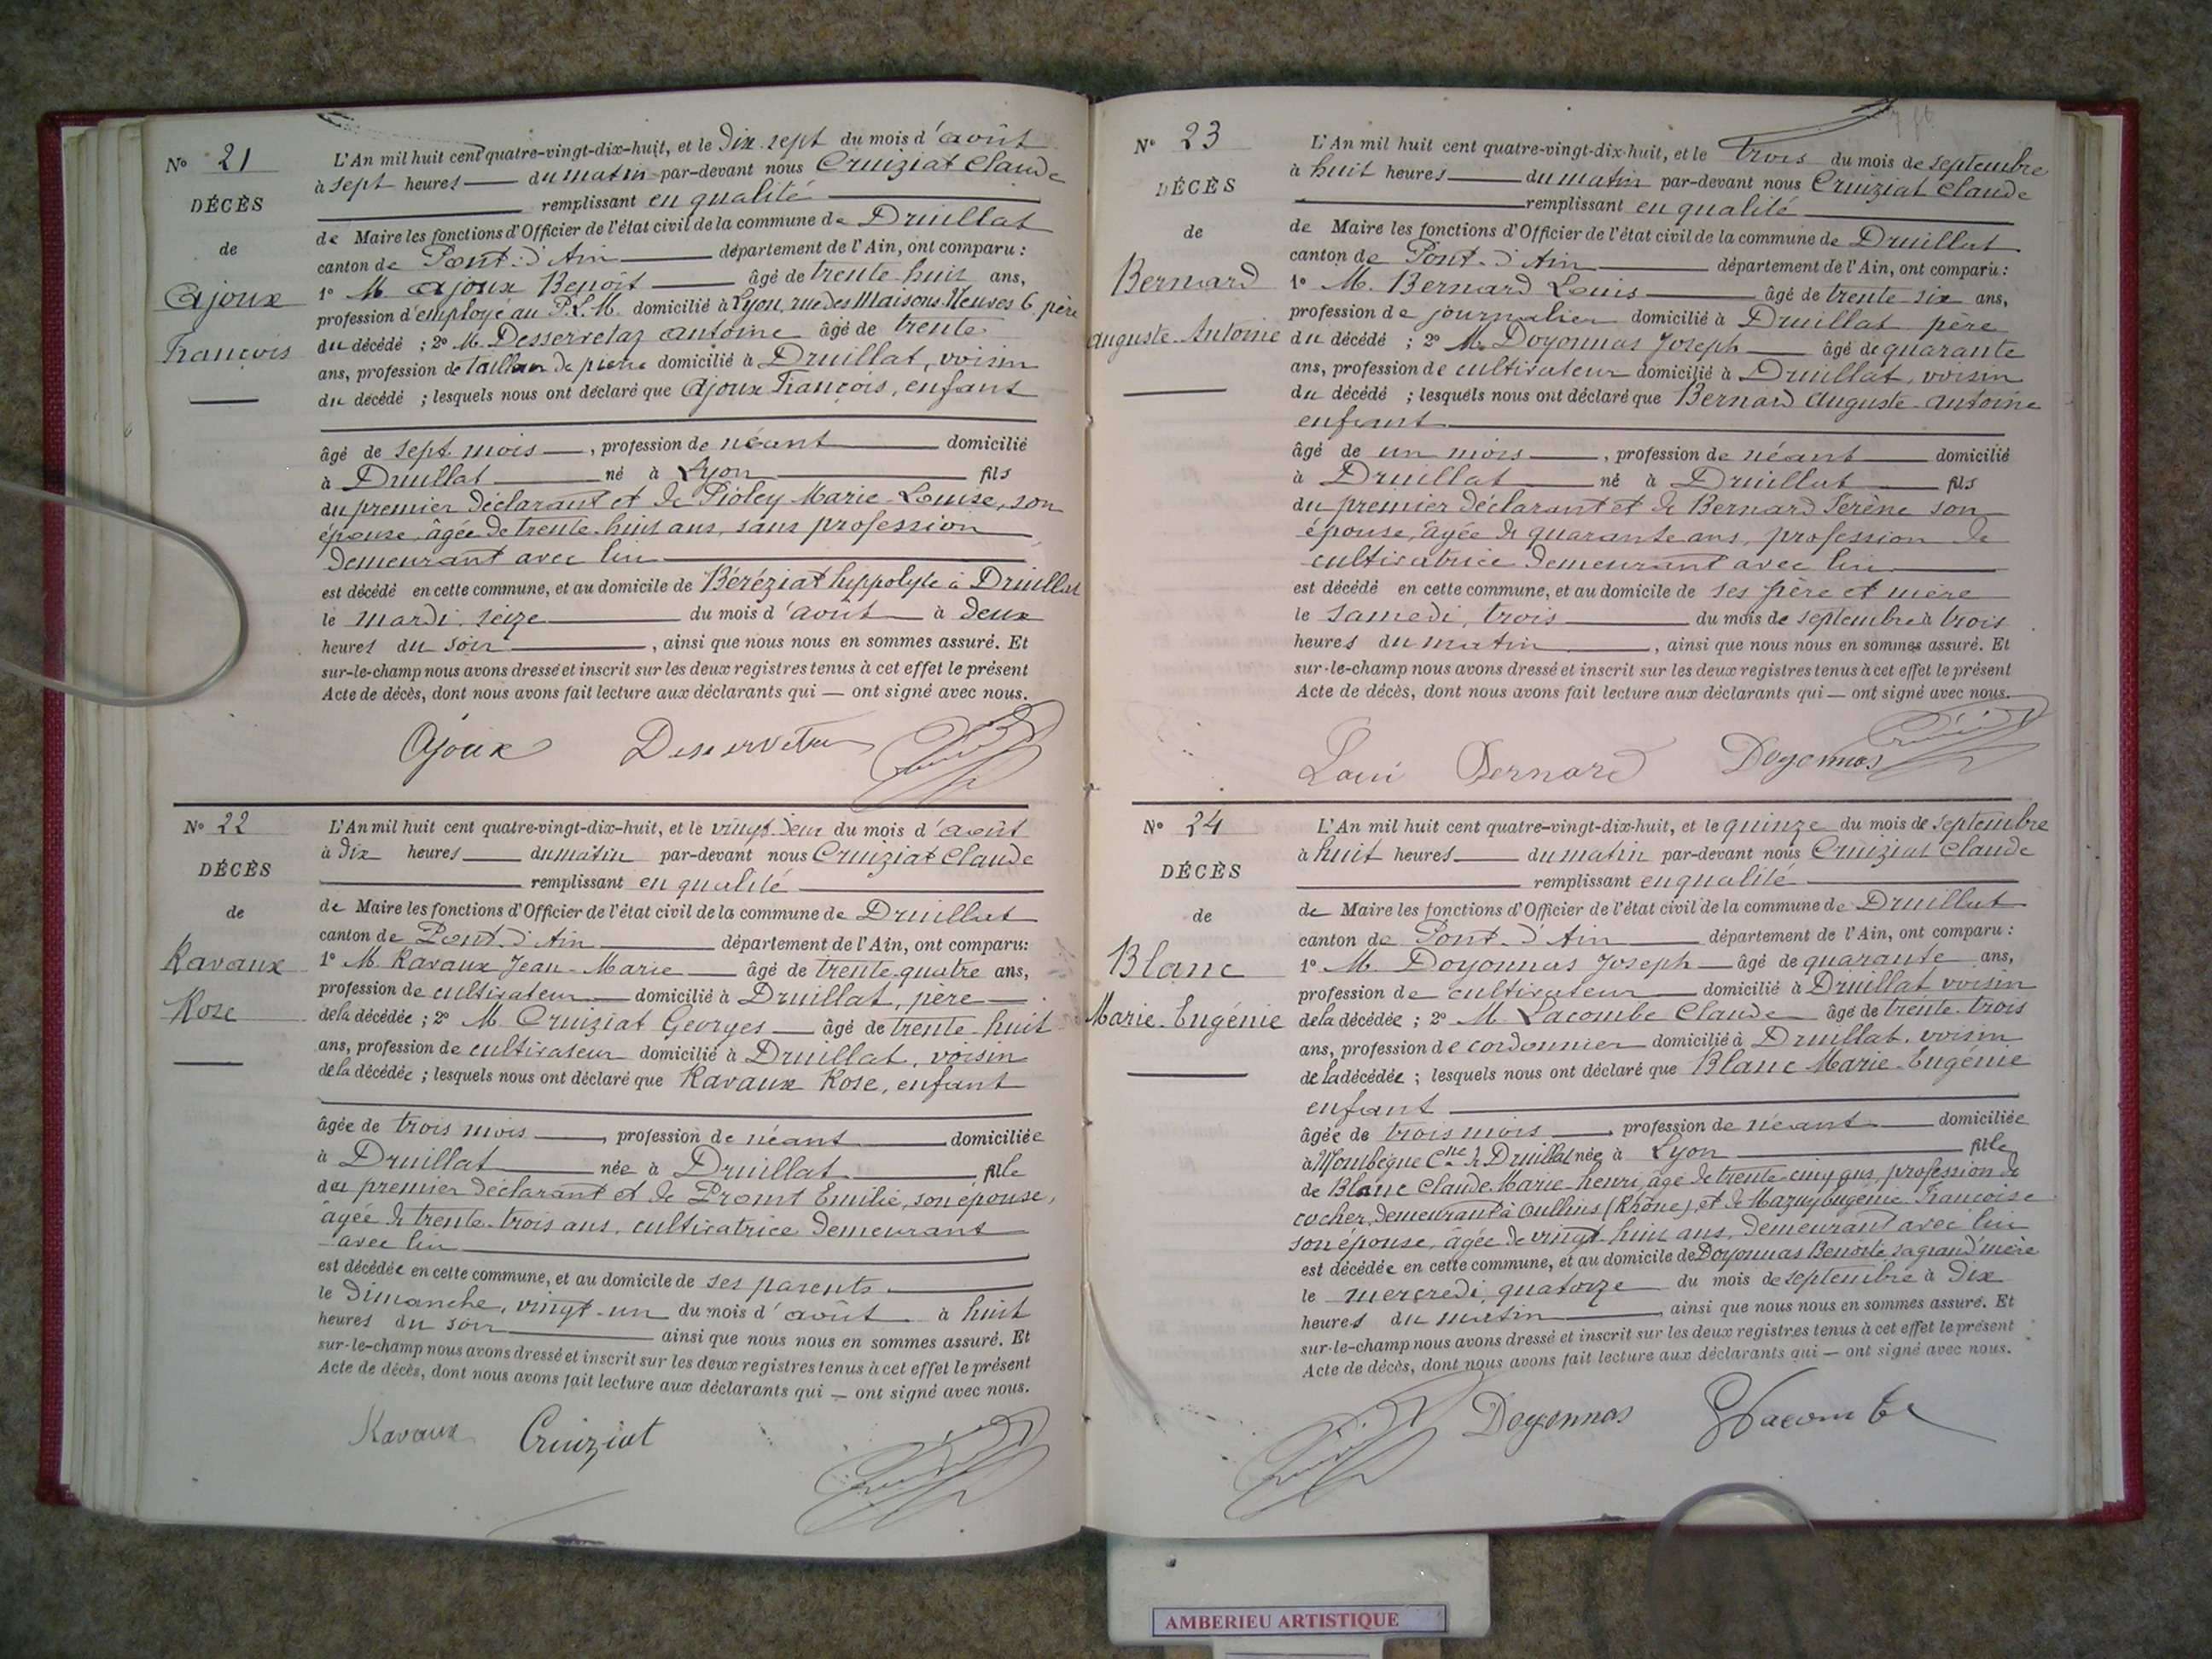 N° 21
DÉCÈS
de
Ajoux
François
L'An mil huit cent quatre-vingt-dix-huit, et le dix sept du mois d'août
à sept heures du matin par-devant nous Cruiziat Claude
remplissant en qualité
de Maire les fonctions d'Officier de l'état civil de la commune de Druillat
canton de Pont-d'Ain département de l'Ain, ont comparu :
1° M. Ajoux Benoît âgé de trente-huit ans,
profession d'employé au P.L.M. domicilié à Lyon, rue des Maisons Neuves 6, père
du décédé ; 2° M. Desserretaz Antoine âgé de trente
ans, profession de tailleur de pierre domicilié à Druillat, voisin
du décédé ; lesquels nous ont déclaré que Ajoux François, enfant
âgé de sept mois, profession de néant domicilié
à Druillat né à Lyon fils
du premier déclarant et de Pioley Marie-Louise, son
épouse, âgée de trente-huit ans, sans profession
demeurant avec lui
est décédé en cette commune, et au domicile de Béréziat hippolyte à Druillat
le mardi, seize du mois d'août à deux
heures du soir, ainsi que nous nous en sommes assuré. Et
sur-le-champ nous avons dressé et inscrit sur les deux registres tenus à cet effet le présent
Acte de décès, dont nous avons fait lecture aux déclarants qui — ont signé avec nous.
Ajoux
N° 22
DÉCÈS
de
Ravaux
Rose
L'An mil huit cent quatre-vingt-dix-huit, et le vingt-deux du mois d'août
à dix heures du matin par-devant nous Cruiziat Claude
remplissant en qualité
de Maire les fonctions d'Officier de l'état civil de la commune de Druillat
canton de Pont-d'Ain département de l'Ain, ont comparu :
1° M. Ravaux Jean-Marie âgé de trente-quatre ans,
profession de cultivateur domicilié à Druillat, père
de la décédée ; 2° M. Cruiziat Georges âgé de trente-huit
ans, profession de cultivateur domicilié à Druillat, voisin
de la décédée ; lesquels nous ont déclaré que Ravaux Rose, enfant
âgée de trois mois, profession de néant domiciliée
à Druillat née à Druillat fille
du premier déclarant et de Promt Emilie, son épouse,
âgée de trente-trois ans, cultivatrice demeurant
avec lui
est décédée en cette commune, et au domicile de ses parents
le dimanche, vingt-un du mois d'août à huit
heures du soir ainsi que nous nous en sommes assuré. Et
sur-le-champ nous avons dressé et inscrit sur les deux registres tenus à cet effet le présent
Acte de décès, dont nous avons fait lecture aux déclarants qui — ont signé avec nous.
Ravaux Cruiziat
N° 23
DÉCÈS
de
Bernard
Auguste-Antoine
L'An mil huit cent quatre-vingt-dix-huit, et le trois du mois de septembre
à huit heures du matin par-devant nous Cruiziat Claude
remplissant en qualité
de Maire les fonctions d'Officier de l'état civil de la commune de Druillat
canton de Pont-d'Ain département de l'Ain, ont comparu :
1° M. Bernard Louis âgé de trente six ans,
profession de journalier domicilié à Druillat père
du décédé ; 2° M. Doyonnas Joseph âgé de quarante
ans, profession de cultivateur domicilié à Druillat, voisin
du décédé ; lesquels nous ont déclaré que Bernard Auguste-Antoine
enfant
âgé de un mois, profession de néant domicilié
à Druillat né à Druillat fils
du premier déclarant et de Bernard Serène son
épouse, âgée de quarante ans, profession de
cultivatrice demeurant avec lui
est décédé en cette commune, et au domicile de ses père et mère
le samedi, trois du mois de septembre à trois
heures du matin, ainsi que nous nous en sommes assuré. Et
sur-le-champ nous avons dressé et inscrit sur les deux registres tenus à cet effet le présent
Acte de décès, dont nous avons fait lecture aux déclarants qui — ont signé avec nous.
Loui Bernard Doyonnas
N° 24
DÉCÈS
de
Blanc
Marie-Eugénie
L'An mil huit cent quatre-vingt-dix-huit, et le quinze du mois de septembre
à huit heures du matin par-devant nous Cruiziat Claude
remplissant en qualité
de Maire les fonctions d'Officier de l'état civil de la commune de Druillat
canton de Pont-d'Ain département de l'Ain, ont comparu :
1° M. Doyonnas Joseph âgé de quarante ans,
profession de cultivateur domicilié à Druillat voisin
de la décédée ; 2° M Lacombe Claude âgé de trente-trois
ans, profession de cordonnier domicilié à Druillat, voisin
de la décédée ; lesquels nous ont déclaré que Blanc Marie-Eugénie
enfant
âgée de trois mois, profession de néant domiciliée
à Mombègue Cne de Druillat née à Lyon fille
de Blanc Claude-Marie-henri, âgé de trente-cinq ans, profession de
cocher, demeurant à Oullins (Rhône), et de Mazuy Eugénie-Françoise
son épouse, âgée de vingt-huit ans, demeurant avec lui
est décédée en cette commune, et au domicile de Doyonnas Benoite sa grand'mère
le mercredi, quatorze du mois de septembre à dix
heures du matin, ainsi que nous nous en sommes assuré. Et
sur-le-champ nous avons dressé et inscrit sur les deux registres tenus à cet effet le présent
Acte de décès, dont nous avons fait lecture aux déclarants qui — ont signé avec nous.
Doyonnas Lacombe
AMBERIEU ARTISTIQUE